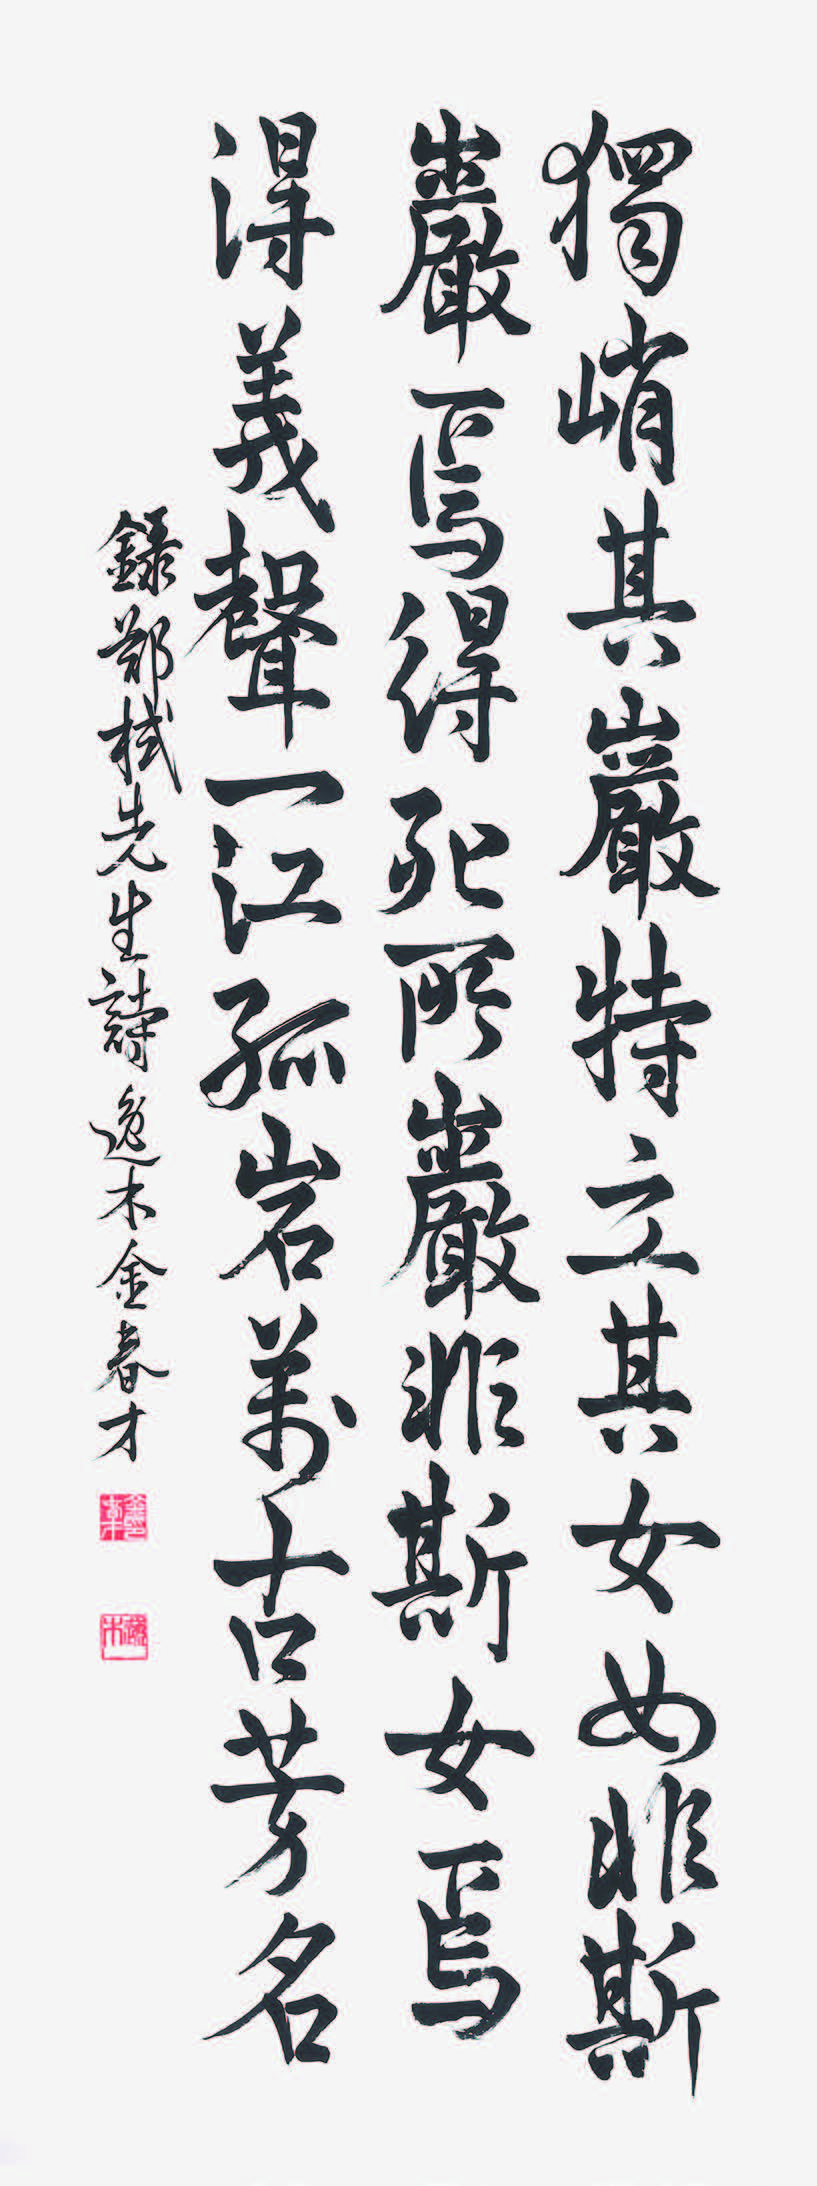 獨峭其巖特立其女女非斯
巖焉得死所巖非斯女焉
得義聲一江孤岩萬古芳名
錄鄭栻先生詩 逸木金春才